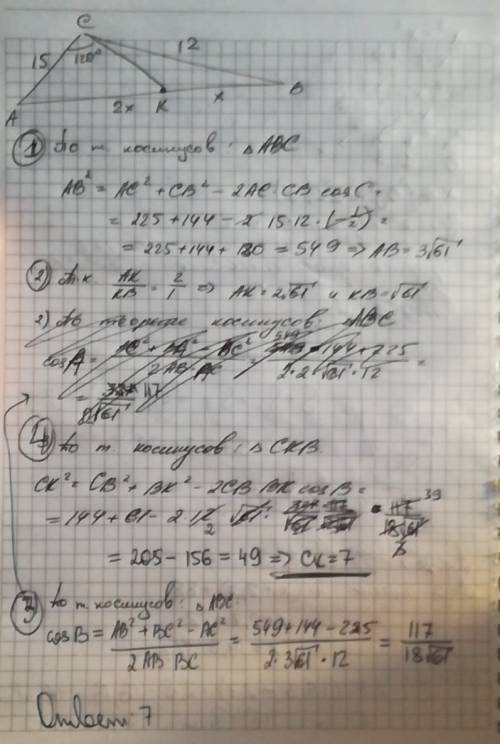 C
15 120° 12
A 2x K x B
1) По т. косинусов: △ABC
AB² = AC² + CB² - 2AC · CB cosC =
= 225 + 144 - 2 · 15 · 12 · (-1/2) =
= 225 + 144 + 180 = 549 => AB = 3√61
2) Т.к. AK/KB = 2/1 => AK = 2√61 и KB = √61
2) По теореме косинусов: △ABC
cosA =
4) По т. косинусов: △CKB
CK² = CB² + BK² - 2CB BK cosB =
= 144 + 61 - 2 · 12 · √61 · 117/18√61 39
= 205 - 156 = 49 => CK = 7
3) По т. косинусов: △ABC
cosB = AB² + BC² - AC² / 2 AB BC = 549 + 144 - 225 / 2 · 3√61 · 12 = 117 / 18√61
Ответ: 7